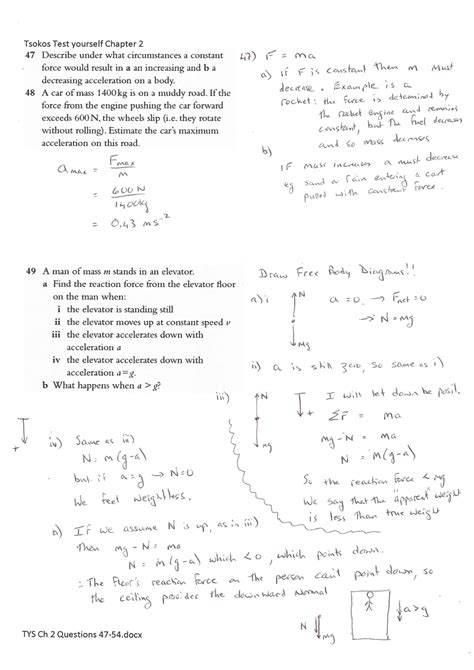 Tsokos Test yourself Chapter 2
47 Describe under what circumstances a constant
force would result in a an increasing and b a
decreasing acceleration on a body.
48 A car of mass 1400 kg is on a muddy road. If the
force from the engine pushing the car forward
exceeds 600 N, the wheels slip (i.e. they rotate
without rolling). Estimate the car's maximum
acceleration on this road.
a max = F max / m
= 600 N / 1400 kg
= 0.43 ms⁻²
47) F = ma
a) if F is constant then m must
decrease. Example is a
rocket: the force is determined by
the rocket engine and remains
constant, but the fuel decreases
and so mass decreases
b)
if mass increases a must decrease
eg sand or rain entering a cart
pulled with constant force.
49 A man of mass m stands in an elevator.
a Find the reaction force from the elevator floor
on the man when:
i the elevator is standing still
ii the elevator moves up at constant speed v
iii the elevator accelerates down with
acceleration a
iv the elevator accelerates down with
acceleration a = g.
b What happens when a > g?
Draw Free Body Diagrams!!
a) i
N
mg
a = 0 → Fnet = 0
→ N = mg
ii) a is still zero, so same as i)
iii)
N
mg
+
I will let down be posit.
ΣF = ma
mg - N = ma
N = m(g-a)
So the reaction force < mg
We say that the "apparent weight"
is less than true weight
+
iv) Same as iii)
N = m(g-a)
but if a = g → N = 0
We feel weightless.
b) If we assume N is up, as in iii)
Then mg - N = ma
N = m(g-a) which < 0, which points down.
∴ The floor's reaction force on the person can't point down, so
the ceiling provides the downward normal
N
mg
a > g
TYS Ch 2 Questions 47-54.docx